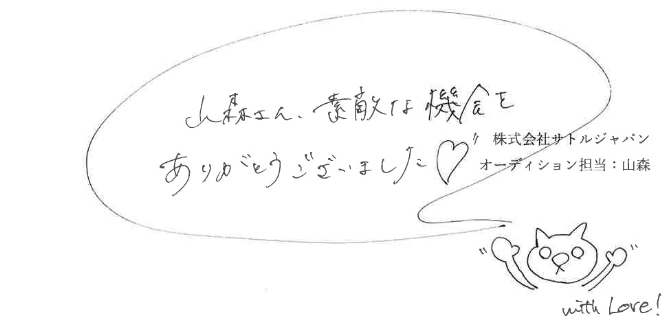 山森さん、素敵な機会を
ありがとうございました♡
株式会社サトルジャパン
オーディション担当：山森
with Love!